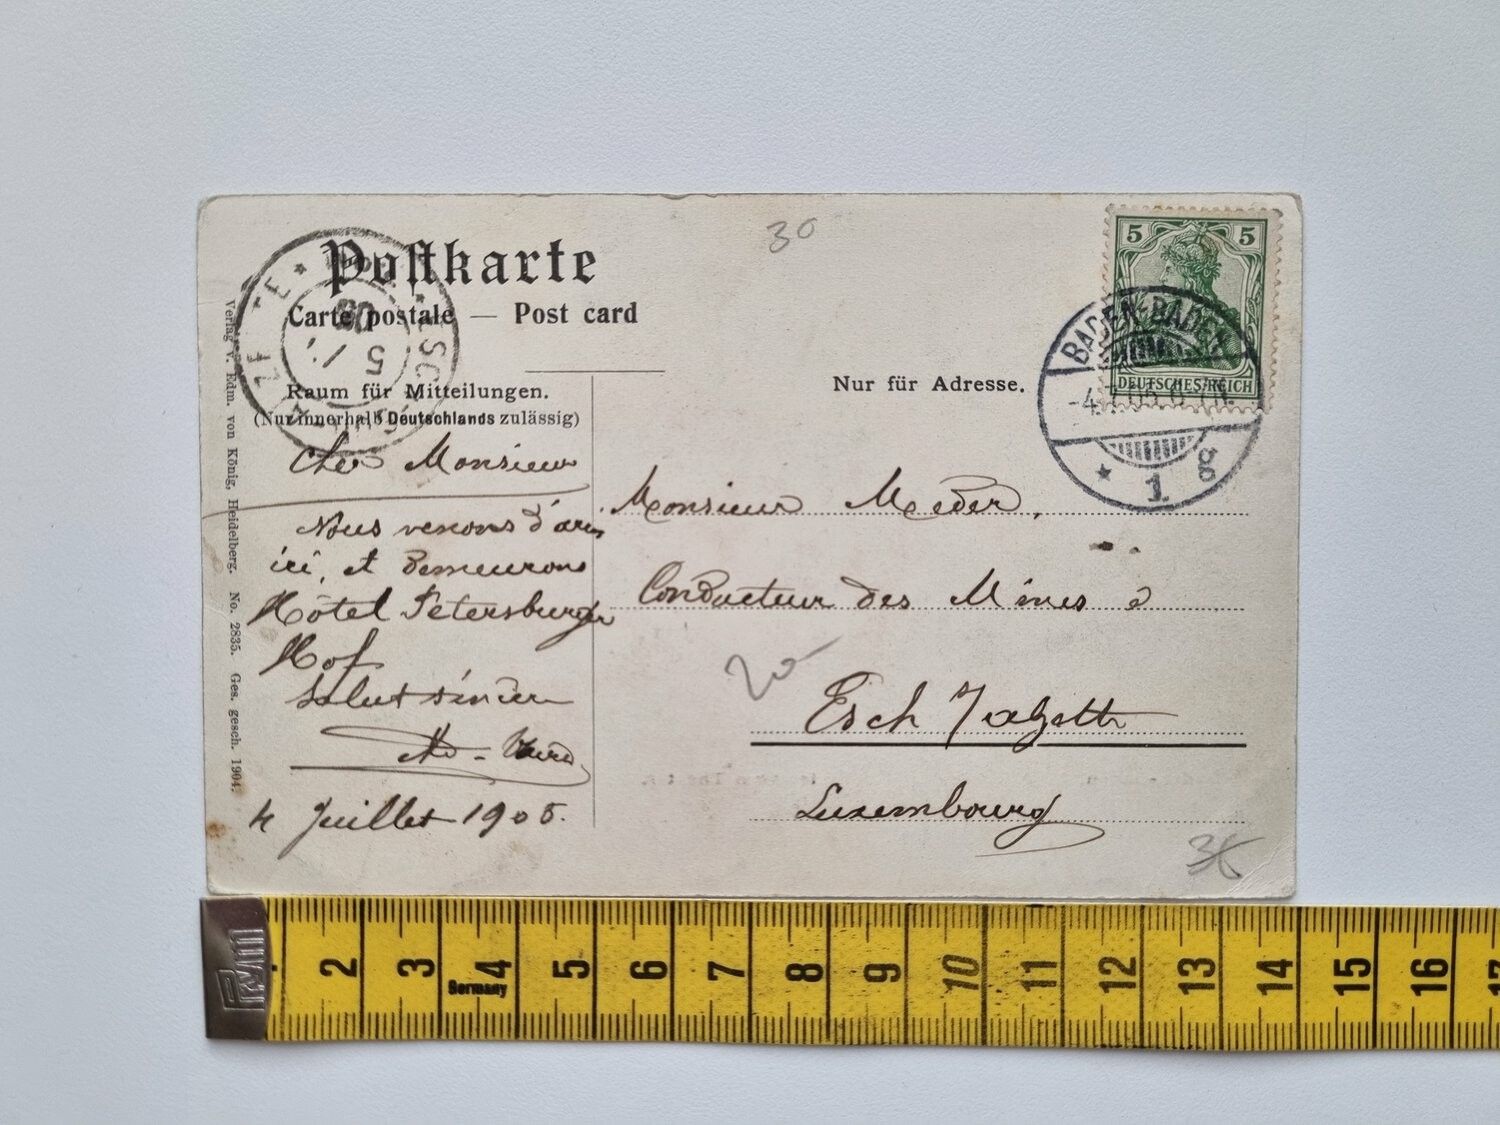 30
Postkarte
Carte postale — Post card
Raum für Mitteilungen.
(Nur innerhalb Deutschlands zulässig)
Nur für Adresse.
5 5
DEUTSCHES REICH
BADEN-BADEN
* 1 g
Cher Monsieur
Nous venons
ici, et demeurons
Hôtel Petersburger
Hof
Salut
4 Juillet 1905.
Monsieur Meder,
Conducteur des Mines à
Esch
Luxembourg
20
Verlag v. Edm. von König, Heidelberg. No. 2835. Ges. gesch. 1904.
PVM
Germany
2 3 4 5 6 7 8 9 10 11 12 13 14 15 16 17